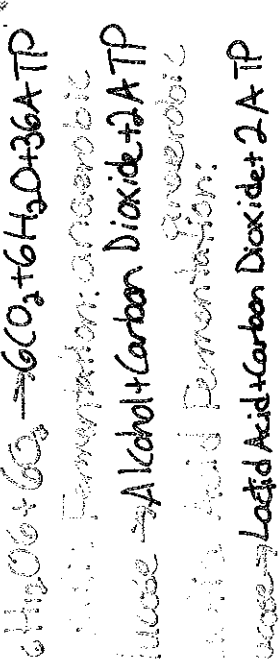 6H₁₂O6+6O₂→6CO₂+6H₂O+36ATP
Fermentation: anaerobic
→Alcohol+Carbon Dioxide+2ATP
Acid Fermentation: anaerobic
→Lactid Acid+Carbon Dioxide+2ATP